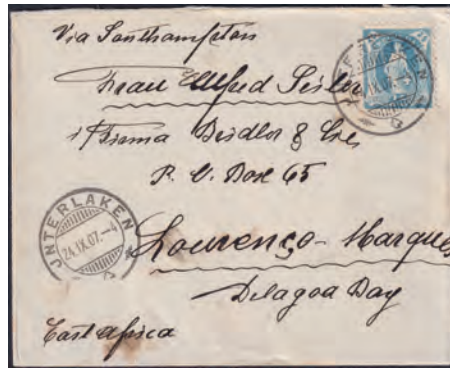 Via Southampton
Frau Alfred Seiler
i/ Firma
P. O. Box 65
Lourenço-Marques
Delagoa Bay
East Africa
INTERLAKEN
24.IX.07.-4